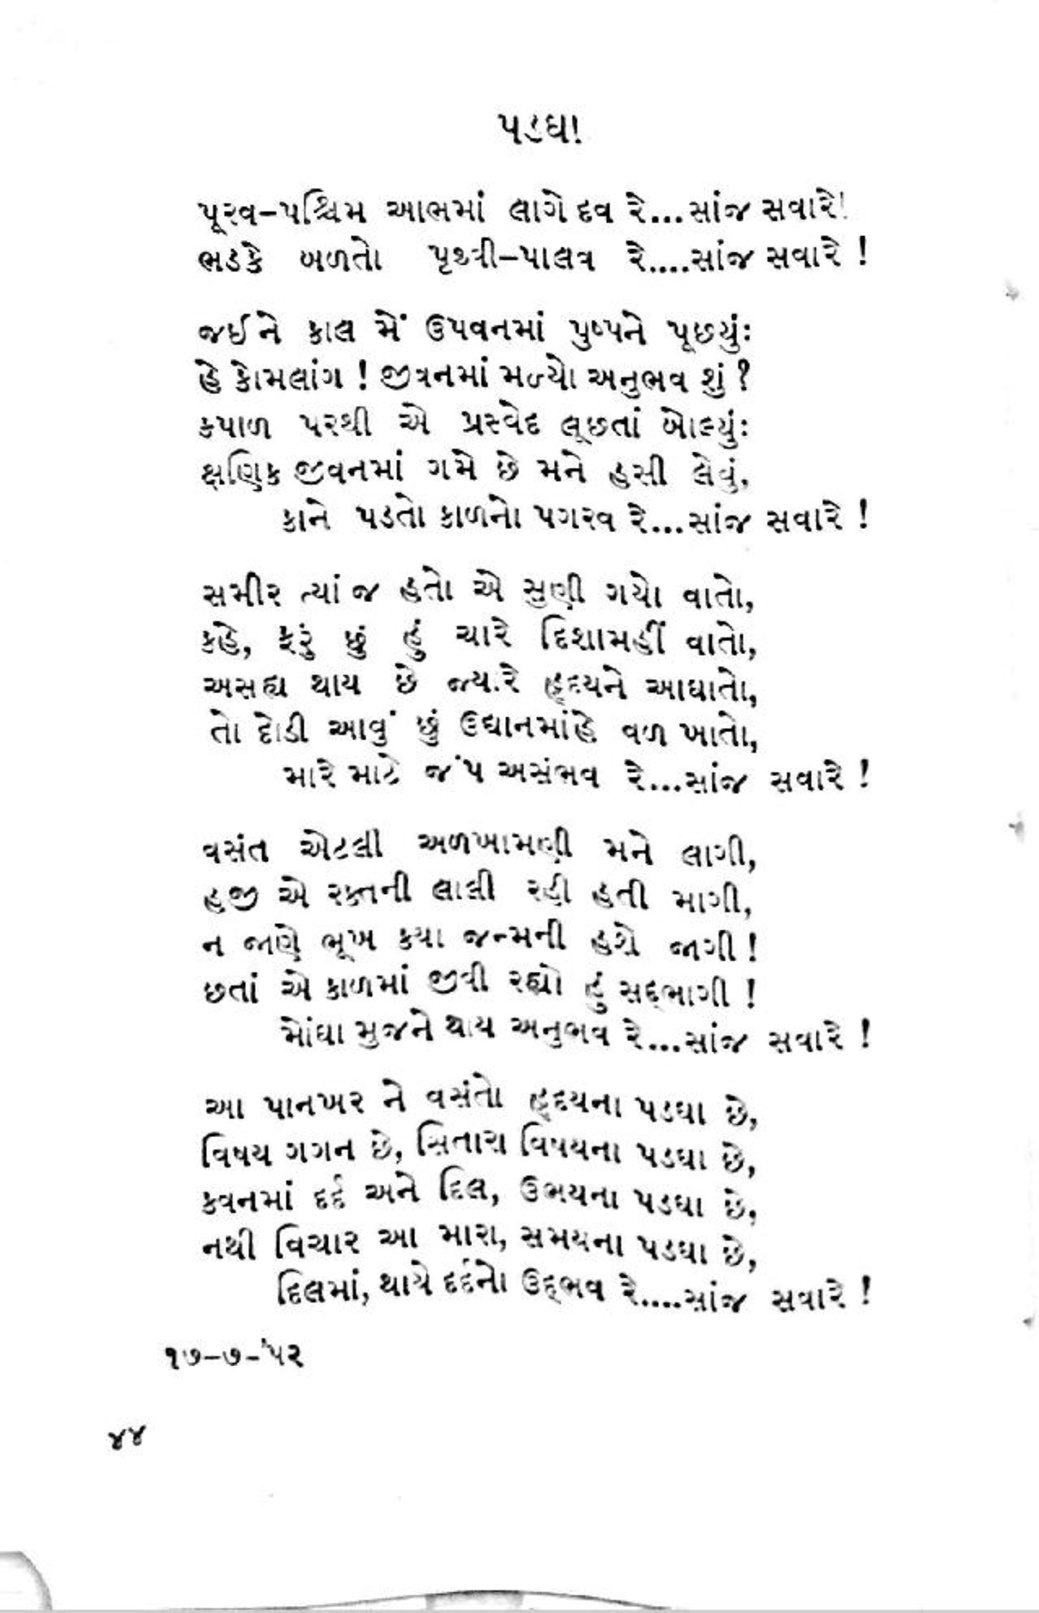 પડઘા
પૂરવ–પશ્ચિમ આભમાં લાગે દવ રે...સાંજ સવારે!
ભડકે બળતો પૃથ્વી–પાલવ રે....સાંજ સવારે !
જઈને કાલ મેં ઉપવનમાં પુષ્પને પૂછ્યુંઃ
હે કોમલાંગ ! જીવનમાં મળ્યો અનુભવ શું ?
કપાળ પરથી એ પ્રસ્વેદ લૂછતાં બોલ્યુંઃ
ક્ષણિક જીવનમાં ગમે છે મને હસી લેવું,
કાને પડતો કાળનો પગરવ રે...સાંજ સવારે !
સમીર ત્યાં જ હતો એ સુણી ગયો વાતો,
કહે, ફરું છું હું ચારે દિશામહીં વાતો,
અસહ્ય થાય છે જ્યારે હૃદયને આઘાતો,
તો દોડી આવું છું ઉદ્યાનમાંહે વળ ખાતો,
મારે માટે જંપ અસંભવ રે...સાંજ સવારે !
વસંત એટલી અળખામણી મને લાગી,
હજી એ રક્તની લાલી રહી હતી માગી,
ન જાણે ભૂખ કયા જન્મની હશે જાગી !
છતાં એ કાળમાં જીવી રહ્યો હું સદ્ભાગી !
મોંઘા મુજને થાય અનુભવ રે...સાંજ સવારે !
આ પાનખર ને વસંતો હૃદયના પડઘા છે,
વિષય ગગન છે, સિતારા વિષયના પડઘા છે,
કવનમાં દર્દ અને દિલ, ઉભયના પડઘા છે,
નથી વિચાર આ મારા, સમયના પડઘા છે,
દિલમાં, થાયે દર્દનો ઉદ્ભવ રે....સાંજ સવારે !
૧૭–૭–'૫૨
૪૪